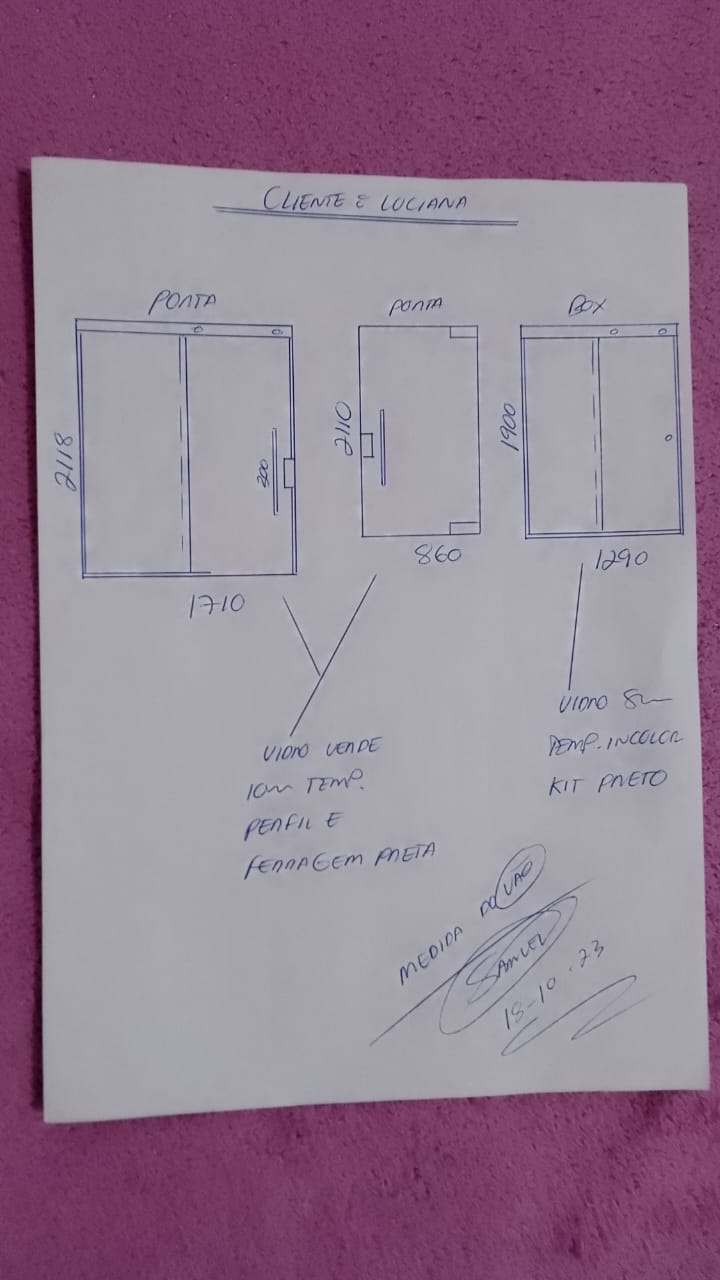 CLIENTE : LUCIANA
PORTA
PORTA
BOX
2118
300
2110
1900
1710
860
1290
VIDRO VERDE
10mm TEMP.
PERFIL E
FERRAGEM PRETA
VIDRO 8mm
TEMP. INCOLOR
KIT PRETO
MEDIDA DO VÃO
SAMUEL
18-10.23